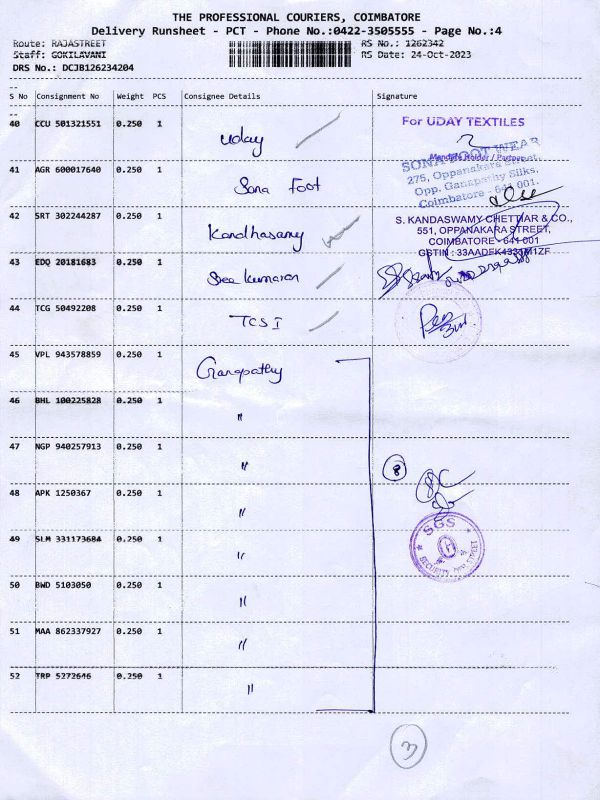 THE PROFESSIONAL COURIERS, COIMBATORE
Delivery Runsheet - PCT - Phone No.:0422-3505555 - Page No.:4
Route: RAJASTREET
RS No.: 1262342
Staff: GOKILAVANI
RS Date: 24-Oct-2023
DRS No.: DCJB126234204
S No Consignment No Weight PCS Consignee Details Signature
40 CCU 501321551 0.250 1 Uday
For UDAY TEXTILES
Mandate Holder / Partner
41 AGR 600017640 0.250 1 Sona Foot
SONA FOOT WEAR
275, Oppanakara Street,
Opp. Ganapathy Silks,
Coimbatore - 641 001.
42 SRT 302244287 0.250 1 Kandhasamy
S. KANDASWAMY CHETTIAR & CO.,
551, OPPANAKARA STREET,
COIMBATORE - 641 001
GSTIN : 33AADFK4331M1ZF
43 EDQ 20181683 0.250 1 Sree Kumaran
44 TCG 50492208 0.250 1 TCS I
45 VPL 943578859 0.250 1 Ganapathy
46 BHL 100225828 0.250 1 "
47 NGP 940257913 0.250 1 "
8
48 APK 1250367 0.250 1 "
49 SLM 331173684 0.250 1 "
SGS
SECURITY OPP. STREET
50 BWD 5103050 0.250 1 "
51 MAA 862337927 0.250 1 "
52 TRP 5272646 0.250 1 "
3